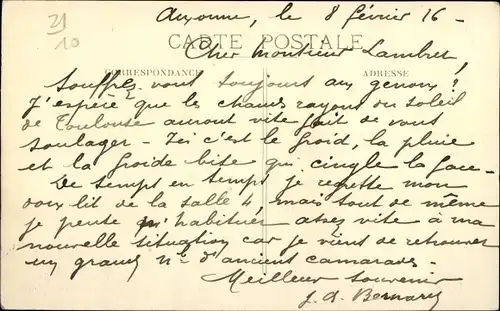 21
10
Auxonne, le 8 février 16 -
CARTE POSTALE
Cher Monsieur Lambret,
CORRESPONDANCE
ADRESSE
Souffrez-vous toujours aux genoux ?
J'espère que les chauds rayons du soleil
de Toulouse auront vite fait de vous
soulager - Ici c'est le froid, la pluie
et la froide bise qui cingle la face -
De temps en temps je regrette mon
doux lit de la salle 4, mais tout de même
je pense m'habituer assez vite à ma
nouvelle situation car je viens de retrouver
un grand nre d'anciens camarades -
Meilleur souvenir
J. A. Bernard